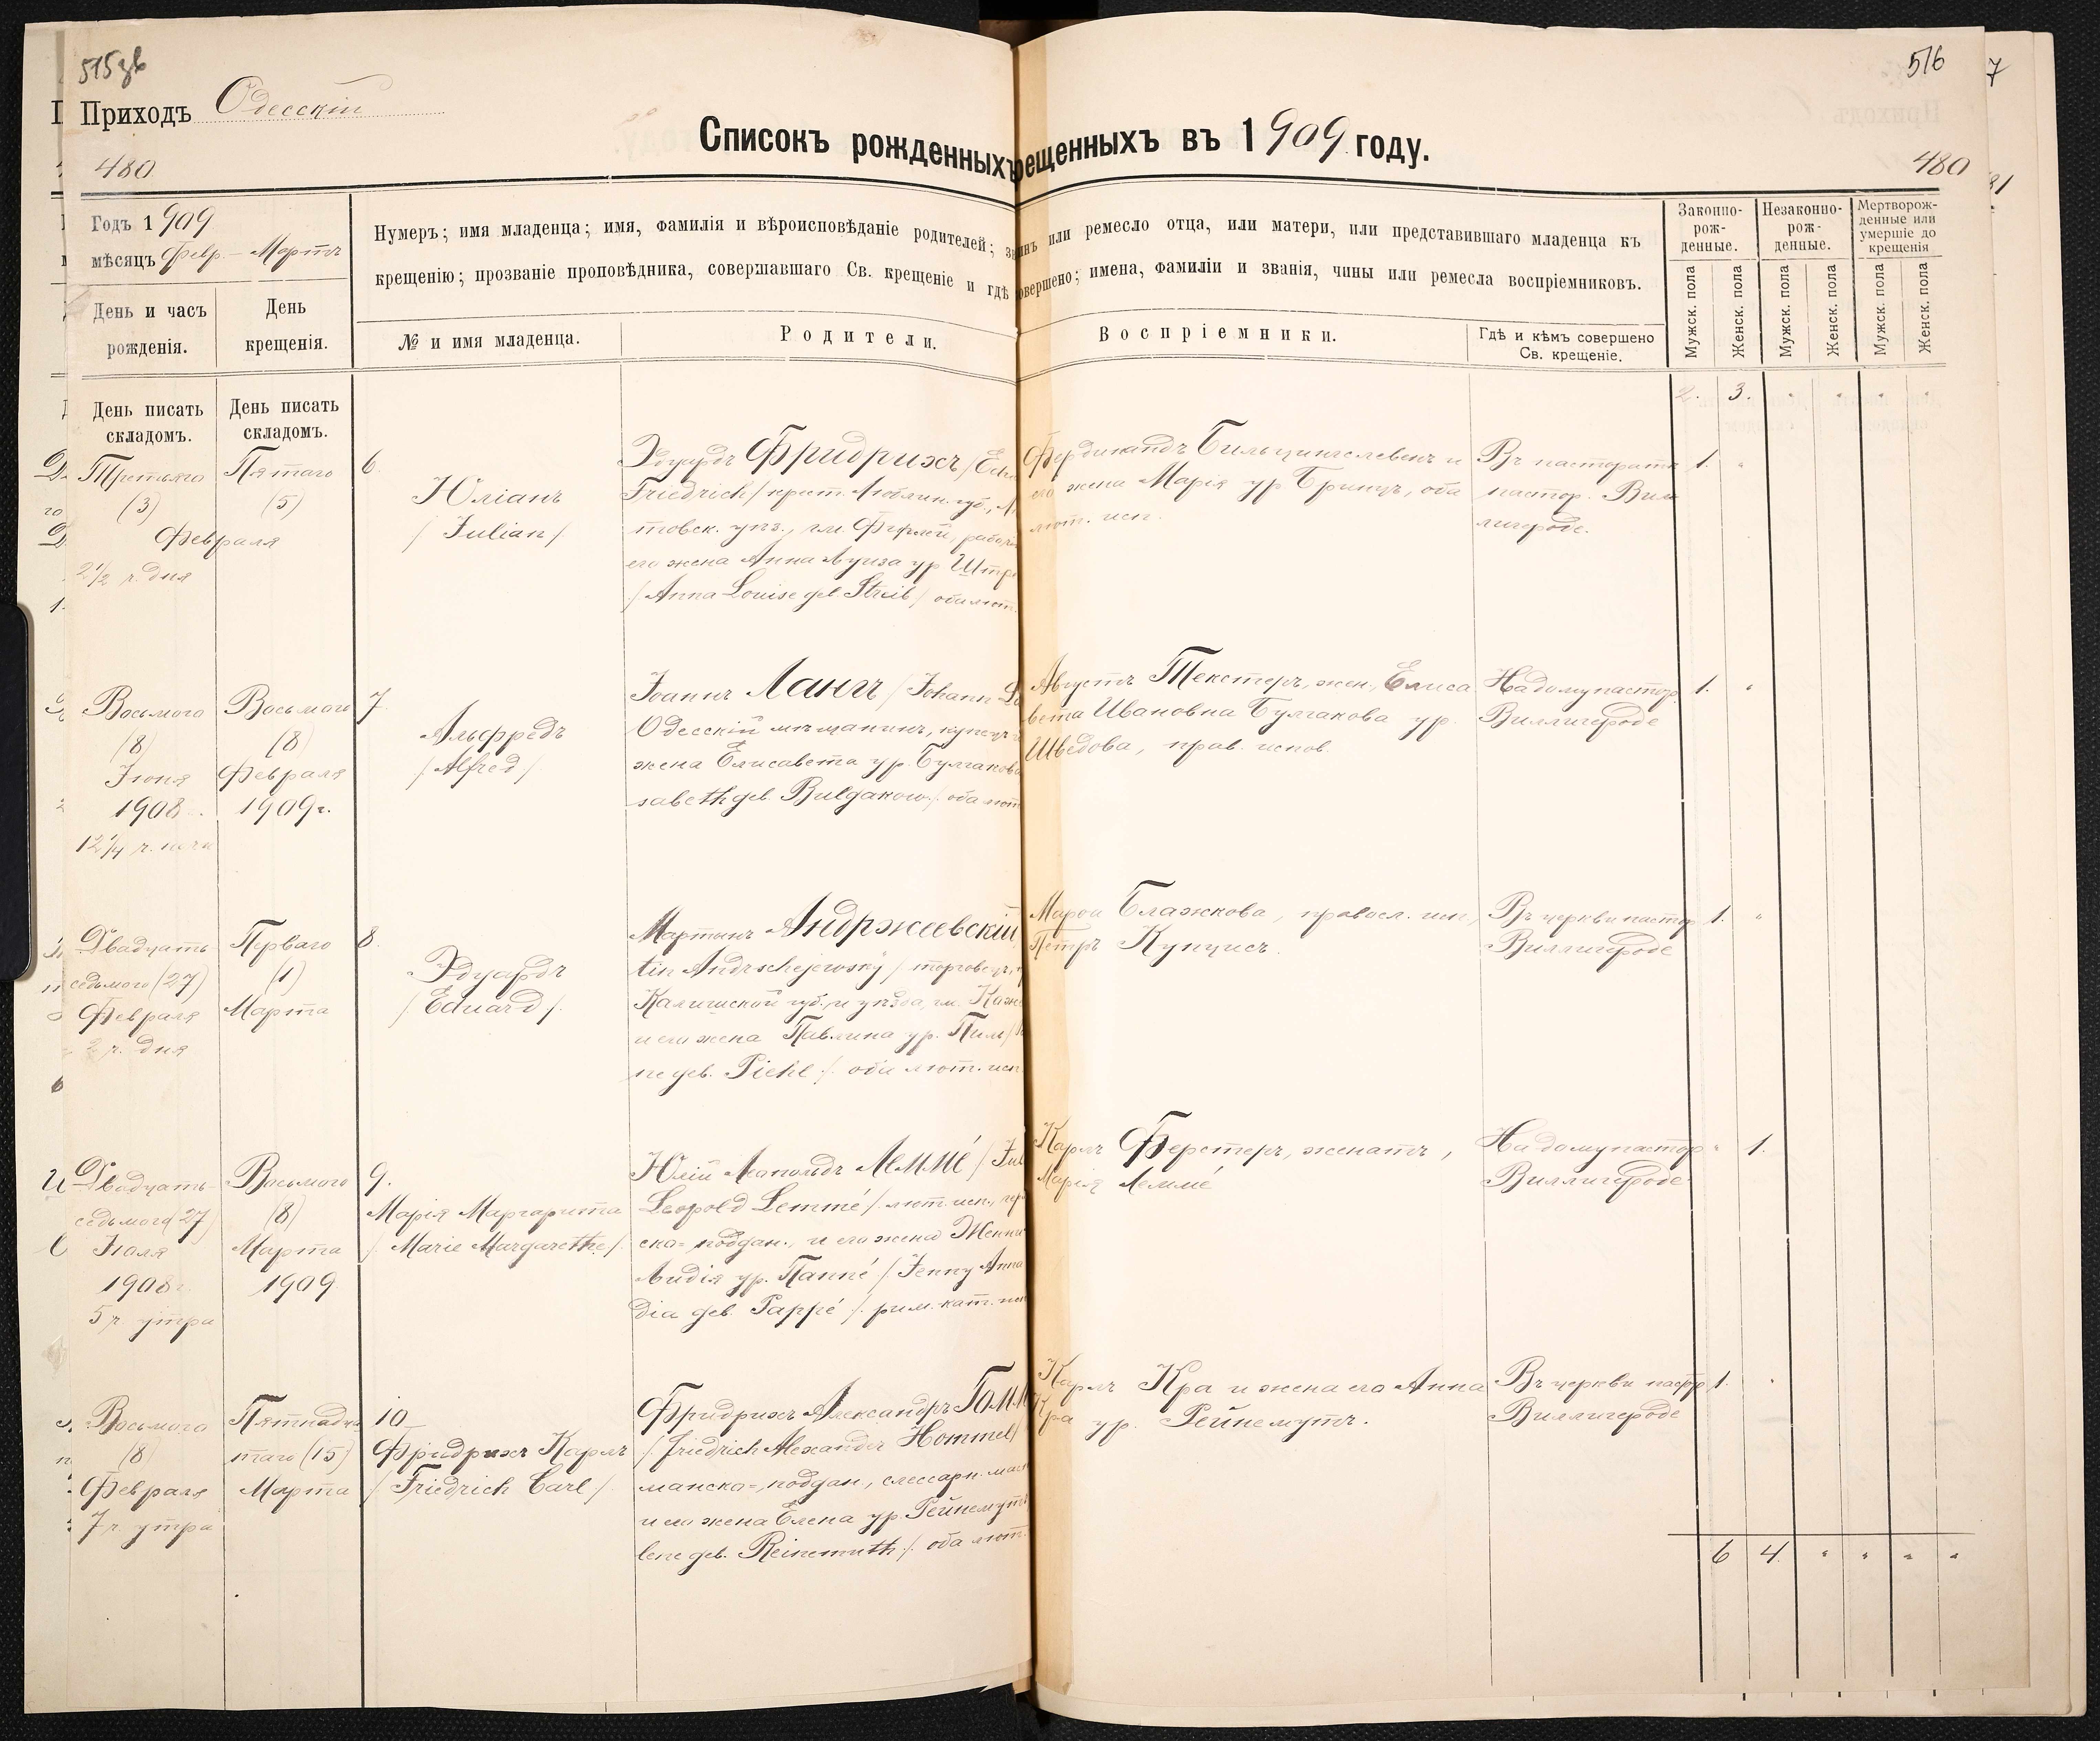 515 зв
516
7
Приходъ Одесскій
Списокъ рожденныхъ
рещенныхъ въ 1909 году.
480
480
81
Годъ 1909
мѣсяцъ Февр. – Мартъ
День и часъ
рожденія.
День
крещенія.
Нумеръ; имя младенца; имя, фамилія и вѣроисповѣданіе родителей; з
инъ или ремесло отца, или матери, или представившаго младенца къ
крещенію; прозваніе проповѣдника, совершавшаго Св. крещеніе и гдѣ
овершено; имена, фамиліи и званія, чины или ремесла воспріемниковъ.
№ и имя младенца.
Родители.
Воспріемники.
Гдѣ и кѣмъ совершено
Св. крещеніе.
Законно-
рож-
денные.
Незаконно-
рож-
денные.
Мертворож-
денные или
умершіе до
крещенія
Мужск. пола
Женск. пола
Мужск. пола
Женск. пола
Мужск. пола
Женск. пола
День писать
складомъ.
День писать
складомъ.
2. 3. " " " "
Третьяго
(3)
Пятаго
(5)
Февраля
2½ ч. дня
6.
Юліанъ
/Julian/
Эдуардъ Фридрихъ /Edu
Friedrich/ крест. Люблин. губ.,
товск. уѣз., гм. Фирлей, рабочій
его жена Анна Луиза ур Штр
/Anna Louise geb Streib/ оба лют.
Фердинандъ Бильцингслевенъ и
его жена Марія ур Бринцъ, оба
лют. исп.
Въ пасторатѣ
пастор. Вил
лигероде.
1. "
Восьмого
(8)
Іюня
1908.
12¼ ч. ночи
Восьмого
(8)
Февраля
1909г.
7.
Альфредъ
/Alfred/
Іоаннъ Лангъ /Johann L
Одесскій мѣщанинъ, купецъ
жена Елисавета ур. Булгаков
sabeth geb. Bulgakow/. оба лют
Августъ Текстеръ, жен., Елиса
вета Ивановна Булгакова ур.
Шведова, прав. испов.
На дому пастор
Виллигероде
1. "
Двадцать
седьмого (27)
Февраля
2 ч. дня
Перваго
(1)
Марта
8.
Эдуардъ
/Eduard/.
Мартынъ Андржеевскій
tin Andrschejewsky/ торговецъ,
Калишской губ., и уѣзда, гм.
и его жена Павлина ур. Пиль/
ne geb. Piehl/. оба лют. исп
Марѳа Блажкова, правосл. исп,
Петръ Купцисъ.
Въ церкви пастор
Виллигероде
1. "
Двадцать
седьмого (27)
Іюля
1908г.
5 ч. утра
Восьмого
(8)
Марта
1909.
9.
Марія Маргарита
/. Marie Margarethe/.
Юлій Леопольдъ Лемме́ /Jul
Leopold Lemmé/. лют. исп., гер
ско-поддан., и его жена Женни
Лидія ур. Паппé /Jenny Anna
dia geb. Pappé/. рим. кат. исп
Карлъ Ферстеръ, женатъ,
Марія Лемме́
На дому пастор
Виллигероде
" 1.
Восьмого
(8)
Февраля
7 ч. утра
Пятнадца
таго (15)
Марта
10.
Фридрихъ Карлъ
/Friedrich Carl/
Фридрихъ Александръ Гомм
/. Friedrich Alexander Hommel/
манско-поддан, слесарн. мас
и его жена Елена ур. Рейнемутъ
lene geb. Reinemuth/. оба лют.
Карлъ Кра и жена его Анна
Кра ур. Рейнемутъ.
Въ церкви пастор
Виллигероде
1. "
6 4 " " " "